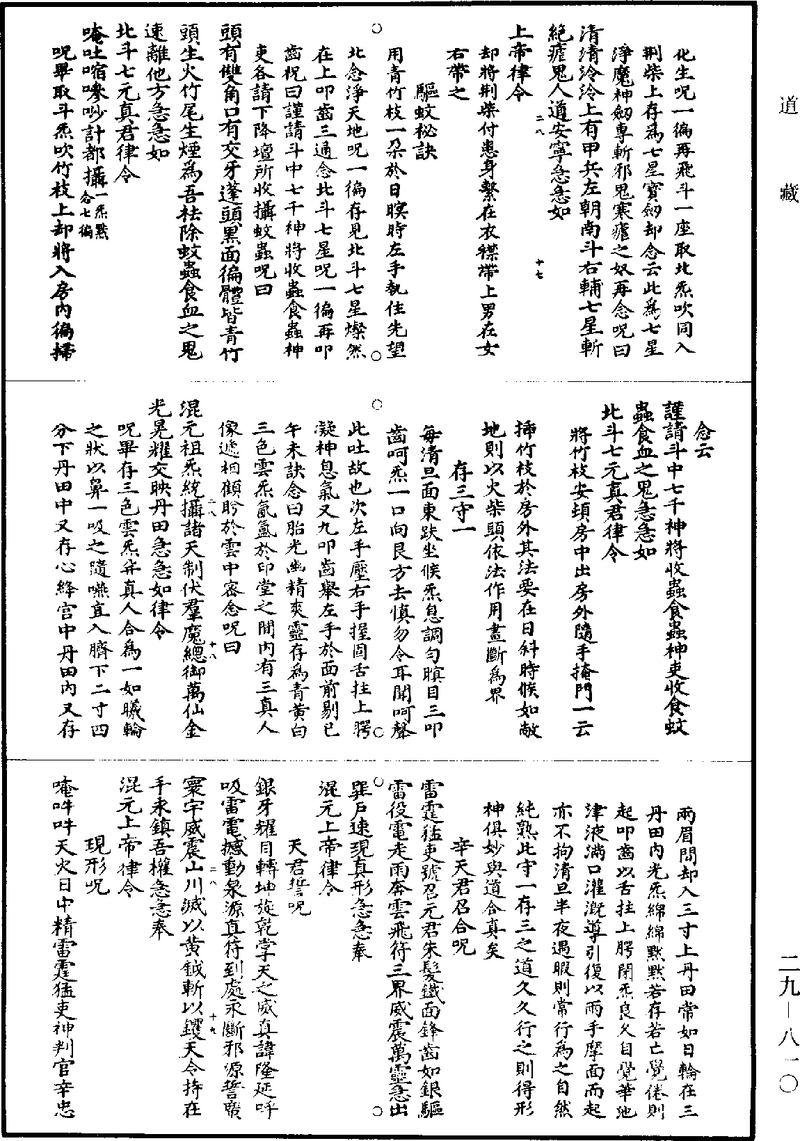 道藏
化生呪一徧再飛斗一座取北炁吹同入
荆柴上存為七星寳劒却念云此為七星
淨魔神劒專斬邪鬼寒瘧之奴再念呪曰
清清泠泠上有甲兵左朝南斗右輔七星斬
絶瘧鬼人道安寧急急如
上帝律令
却將荆柴付患身繫在衣襟帶上男在女
右帶之
驅蚊秘訣
用青竹枝一朶於日暝時左手執住先望
北念淨天地呪一徧存見北斗七星燦然
在上叩齒三通念北斗七星呪一徧再叩
齒祝曰謹請斗中七千神將收蟲食蟲神
吏各請下降壇所收攝蚊蟲呪曰
頭有雙角口有交牙蓬頭黒面徧體皆青竹
頭生火竹尾生煙為吾祛除蚊蟲食血之鬼
速離他方急急如
北斗七元真君律令
唵吐㗩嘇吵計都攝一炁黙念七徧
呪畢取斗炁吹竹枝上却將入房内徧掃
二八
十七
念云
謹請斗中七千神將收蟲食蟲神吏收食蚊
蟲食血之鬼急急如
北斗七元真君律令
將竹枝安頓房中出房外隨手掩門一云
揷竹枝於房外其法要在日斜時候如敞
地則以火柴頭依法作用畫斷為界
存三守一
每清旦面東趺坐候炁息調匀瞑目三叩
齒呵炁一口向艮方去慎勿令耳聞呵聲
此吐故也次左手壓右手握固舌拄上腭
凝神息氣又九叩齒舉左手於面前剔巳
午未訣念曰胎光幽精爽靈存為青黄白
三色雲炁氤氳於印堂之間内有三真人
像遞相顧盼於雲中密念呪曰
混元祖炁統攝諸天制伏羣魔總御萬仙金
光晃耀交映丹田急急如律令
呪畢存三色雲炁并真人合為一如曦輪
之狀以鼻一吸之隨嚥直入臍下二寸四
分下丹田中又存心絳宫中丹田内又存
二八
十八
兩眉間却入三寸上丹田常如日輪在三
丹田内光炁綿綿黙黙若存若亡覺倦則
起叩齒以舌拄上腭閉炁良久自覺華池
津液滿口灌漑導引復以兩手摩面而起
亦不拘清旦半夜遇暇則常行為之自然
純熟此守一存三之道久久行之則得形
神俱妙與道合真矣
辛天君召合呪
雷霆猛吏號召元君朱髮鐵面鋒齒如銀驅
雷役電走雨奔雲飛符三界威震萬靈急出
巽戸速現真形急急奉
混元上帝律令
天君誓呪
銀牙耀目轉坤旋乾掌天之威真諱隆延呼
吸雷電撼動泉源真符到處永斷邪源誓廣
寰宇威震山川滅以黄鉞斬以鐵天令持在
手永鎮吾權急急奉
混元上帝律令
現形呪
唵吽吽天火日中精雷霆猛吏神判官辛忠
二八
十九
二九—八一〇